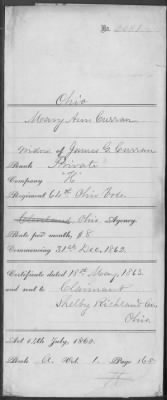 No.
Ohio
Mary Ann Curran
Widow of James G. Curran
Rank Private
Company "K"
Regiment 64th Ohio Vols.
Cleveland, Ohio, Agency.
Rate per month, $8
Commencing 31st Dec, 1862.
Certificate dated 18th May, 1863
and sent to Claimant
Shelby Richland Co,
Ohio
Act 14th July, 1862.
Book A Vol. 1 Page 165